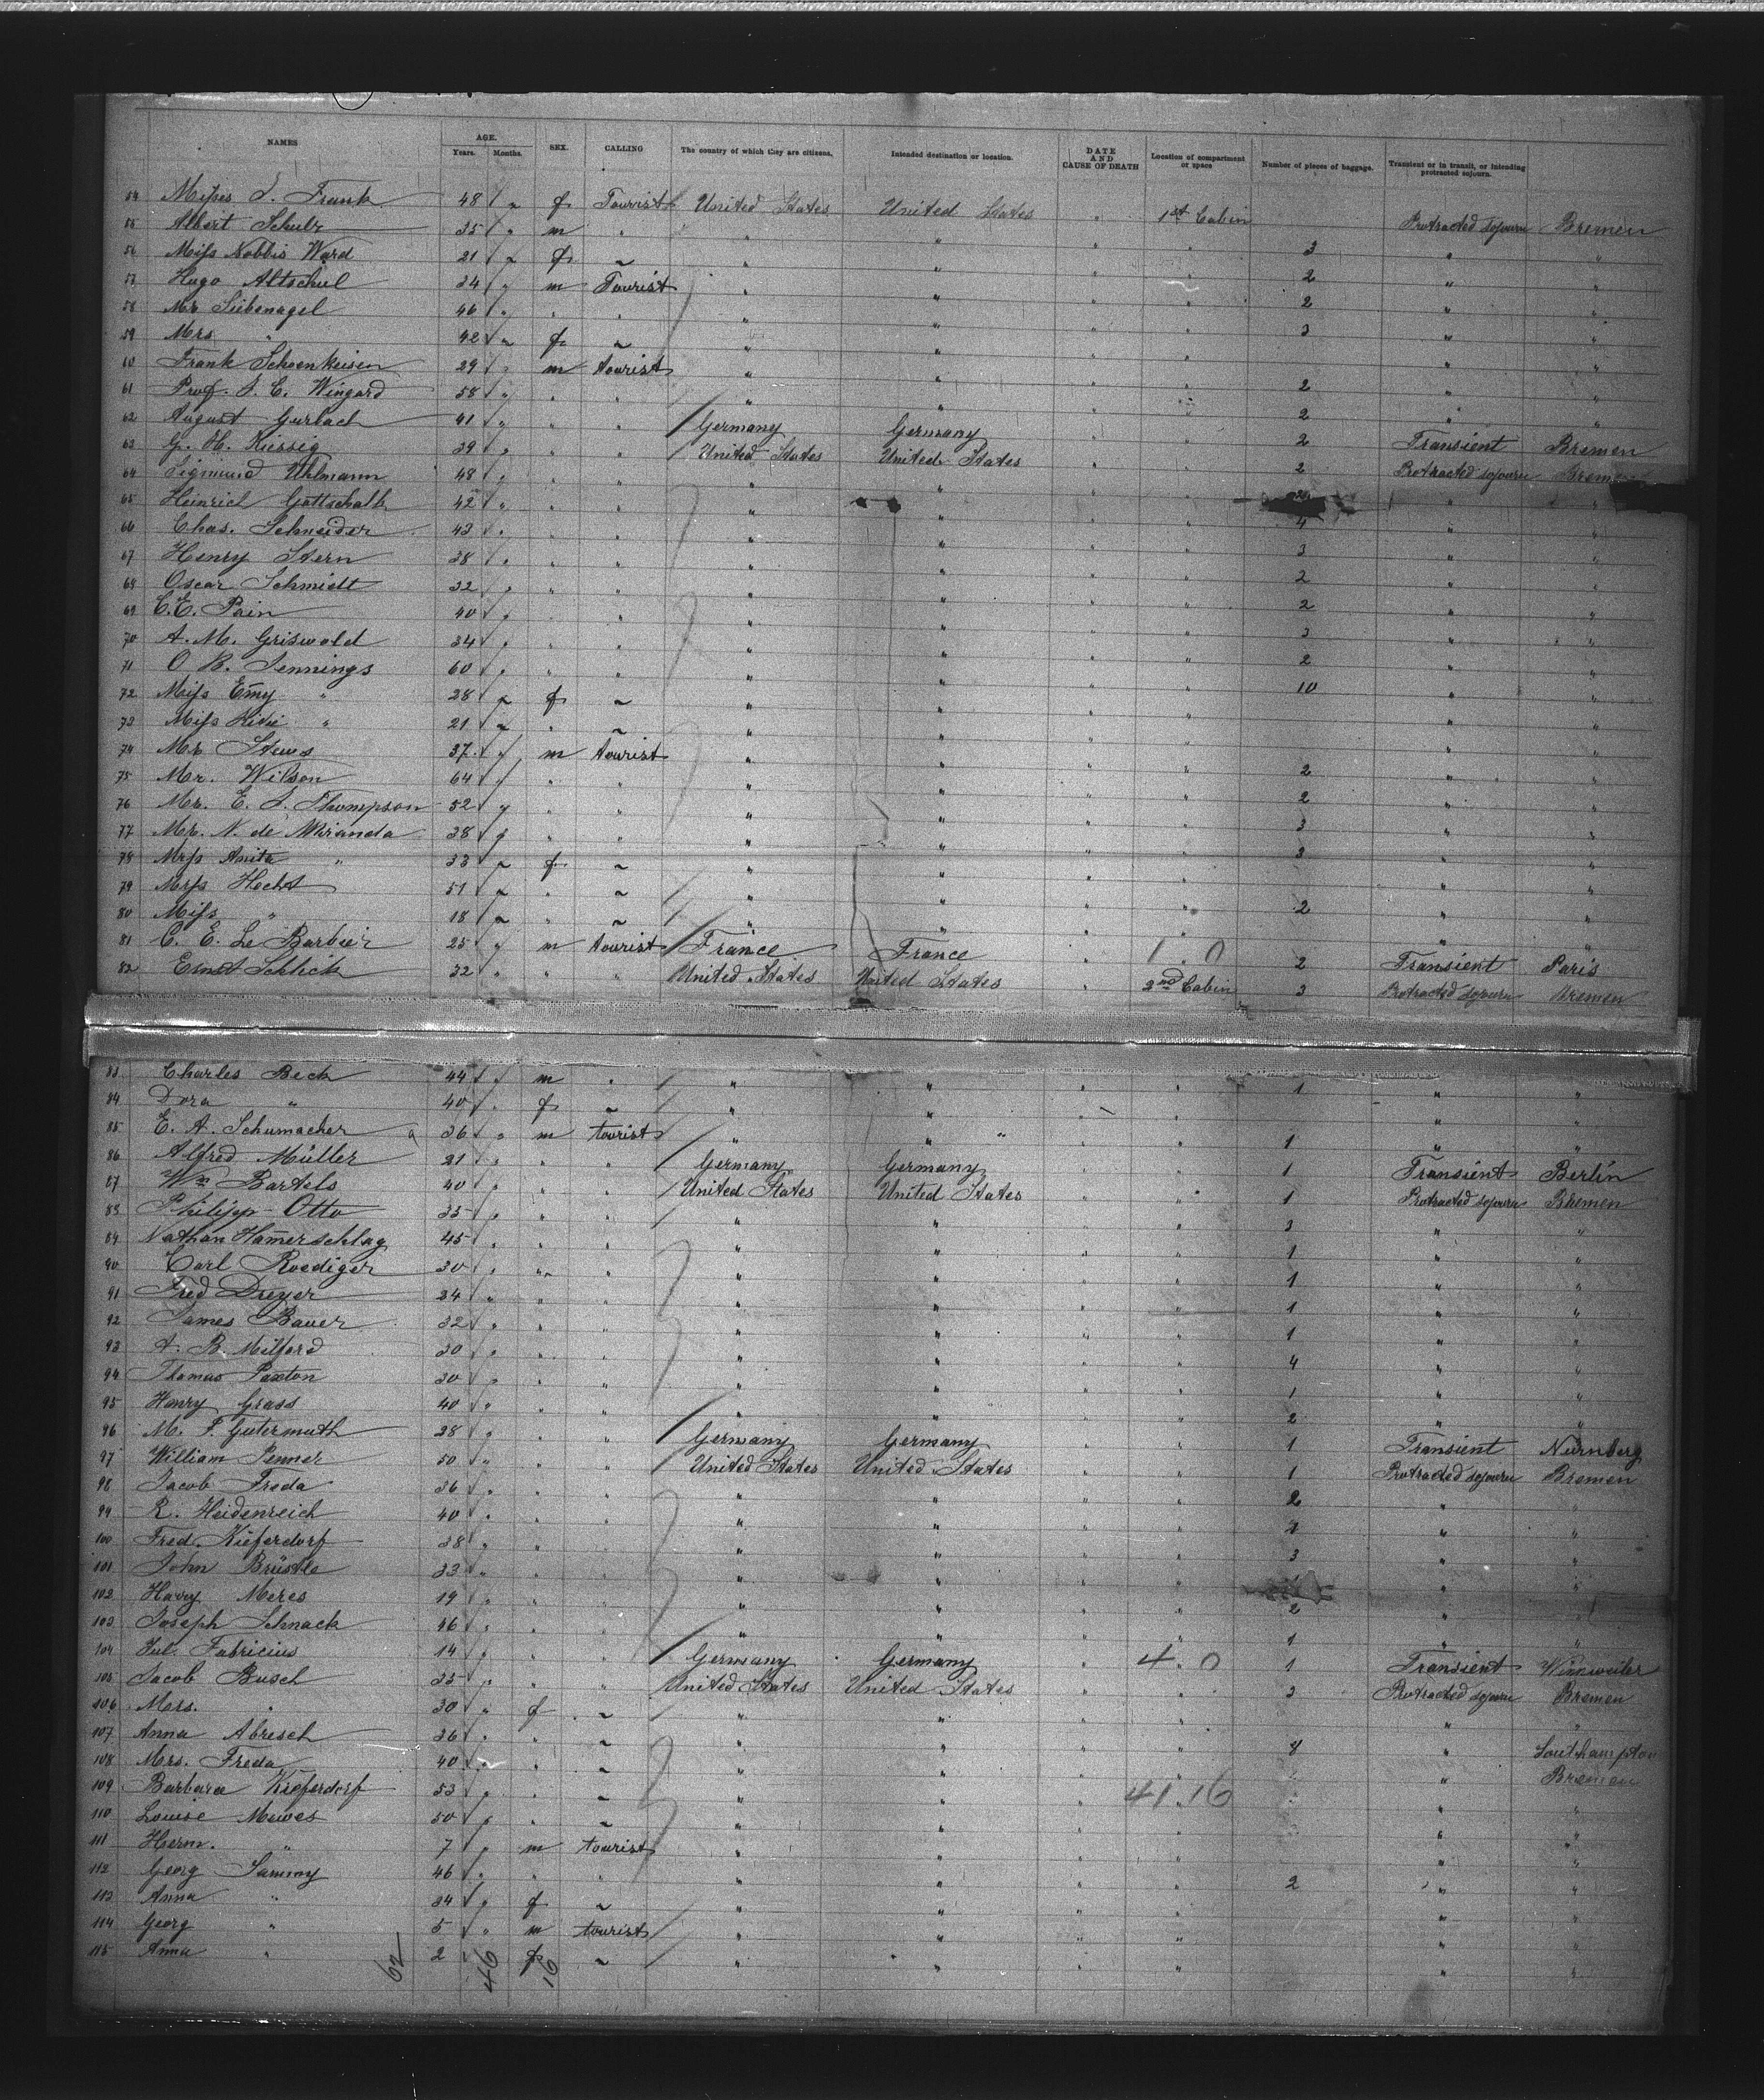 NAMES AGE. Years. Months. SEX. CALLING The country of which they are citizens. Intended destination or location. DATE AND CAUSE OF DEATH Location of compartment or space Number of pieces of baggage. Transient or in transit, or intending protracted sojourn.
54 Frank 48 " f Tourist United States United States " 1st Cabin Protracted sojourn Bremen
55 Albert Schulz 35 " m " " " " " 3 " "
56 Miss Nobbis Ward 21 " f ~ " " " " 2 " "
57 Hugo Altschul 34 " m Tourist " " " " 2 " "
58 Mr Siebenagel 46 " " " " " " " 3 " "
59 Mrs " 42 " f ~ " " " " " "
60 Frank Schoenkeisen 29 " m tourist " " " " 2 " "
61 Prof. S. C. Wingard 58 " " " " " " " 2 " "
62 August Gurlach 41 " " " Germany Germany " " 2 Transient Bremen
63 G. H. Kiessig 39 " " " United States United States " " 2 Protracted sojourn Bremen
64 Sigmund Uhlmann 48 " " " " " " " " "
65 Heinrich Gottschalk 42 " " " " " " " 4 " "
66 Chas. Schneider 43 " " " " " " " 3 " "
67 Henry Stern 38 " " " " " " " 2 " "
68 Oscar Schmidt 32 " " " " " " " 2 " "
69 C. E. Pain 40 " " " " " " " 3 " "
70 A. M. Griswold 34 " " " " " " " 2 " "
71 O. B. Jennings 60 " " " " " " " 10 " "
72 Miss Emy " 28 " f ~ " " " " " "
73 Miss " 21 " " ~ " " " " " "
74 Mr. Stews 37 " m tourist " " " " 2 " "
75 Mr. Wilson 64 " " " " " " " 2 " "
76 Mr. E. S. Thompson 52 " " " " " " " 3 " "
77 Mr. N. de Miranda 38 " " " " " " " 3 " "
78 Mrs Anita " 33 " f ~ " " " " " "
79 Mrs Hecht 51 " " ~ " " " " 2 " "
80 Miss " 18 " " ~ " " " " " "
81 C. E. Le Barbier 25 " m tourist France France " 1 . 0 2 Transient Paris
82 Ernst Schlick 32 " " " United States United States " 2nd Cabin 3 Protracted sojourn Bremen
83 Charles Beck 44 " m " " " " " 1 " "
84 Dora " 40 " f ~ " " " " " "
85 E. A. Schumacher 36 " m tourist " " " " 1 " "
86 Alfred Müller 21 " " " Germany Germany " " 1 Transient Berlin
87 Wm Bartels 40 " " " United States United States " " 1 Protracted sojourn Bremen
88 Philipp Otto 35 " " " " " " " 3 " "
89 Nathan Hamerschlag 45 " " " " " " " 1 " "
90 Carl Roediger 30 " " " " " " " 1 " "
91 Fred Dreyer 34 " " " " " " " 1 " "
92 James Bauer 32 " " " " " " " 1 " "
93 A. B. Milford 30 " " " " " " " 4 " "
94 Thomas Paxton 30 " " " " " " " 1 " "
95 Henry Grass 40 " " " " " " " 2 " "
96 M. P. Gutermuth 28 " " " Germany Germany " " 1 Transient Nürnberg
97 William Penner 50 " " " United States United States " " 1 Protracted sojourn Bremen
98 Jacob Freda 36 " " " " " " " 2 " "
99 R. Heidenreich 40 " " " " " " " " "
100 Fred. Kieferdorf 28 " " " " " " " 3 " "
101 John Brüstle 33 " " " " " " " " "
102 Harry Meres 19 " " " " " " " 2 " "
103 Joseph Schnack 46 " " " " " " " 1 " "
104 Jul. Fabricius 14 " " " Germany Germany " 4 . 0 1 Transient Winnweiler
105 Jacob Busch 35 " " " United States United States " " 3 Protracted sojourn Bremen
106 Mrs. " 30 " f ~ " " " " " "
107 Anna Abresch 36 " " ~ " " " " 8 " Southampton
108 Mrs. Freda 40 " " ~ " " " " " Bremen
109 Barbara Kieferdorf 53 " " ~ " " " 41.16 " "
110 Louise Mewes 50 " " ~ " " " " " "
111 Herm. " 7 " m tourist " " " " " "
112 Georg Sammy 46 " " " " " " " 2 " "
113 Anna " 34 " f ~ " " " " " "
114 Georg " 5 " m tourist " " " " " "
115 Anna " 2 " f ~ " " " " " "
62 46 16